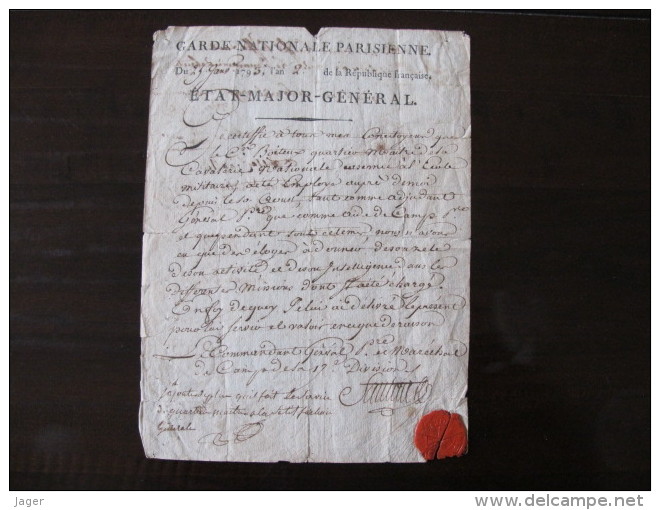 GARDE-NATIONALE PARISIENNE.
Du 1793, l'an 2e de la République française.
ÉTAT-MAJOR-GÉNÉRAL.
Je certifie à tous mes Concitoyens que
le Cen quartier Maitre de la
Cavalerie Nationale à l'Ecole
militaire, a été Employé auprè de moi
depuis le 10 tant comme adjudant
Général que comme aide de Camp
et que pendant tout ce tems, nous n'avons
eu que des éloges à donner de son zele
de son activité et de son Intelligence dans les
differentes Missions dont il a été chargé.
En foy de quoy Je lui ai delivré le present
pour lui servir et valoir en ce que de raison
Le Commandant Général et Marechal
de Camp de la 17e Division
J'ajoute de plus qu'il fait le service
de quartier maitre a la
Générale
Jager
http://www.delcampe.net